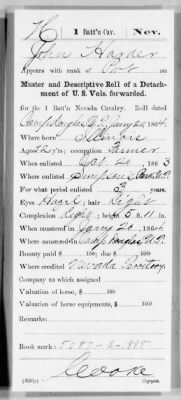 H | 1 Batt'n Cav. | Nev.
John Harder
Appears with rank of Pvt on
Muster and Descriptive Roll of a Detach-
ment of U. S. Vols. forwarded.
for the 1 Batt'n Nevada Cavalry. Roll dated
Camp Douglas U.T. Jany 20, 1864.
Where born Illinois
Age 22 y'rs; occupation Farmer
When enlisted Oct 20, 1863
Where enlisted Simpson
For what period enlisted 3 years.
Eyes Hazel; hair Light
Complexion Light; height 5 ft. 11 in.
When mustered in Jany 20, 1864
Where mustered in Camp Douglas U.T.
Bounty paid $ 100; due $ 100
Where credited Nevada Territory
Company to which assigned
Valuation of horse, $ 100
Valuation of horse equipments, $ 100
Remarks:
Book mark: 5087-C-1885
Cooke
(339) Copyist.